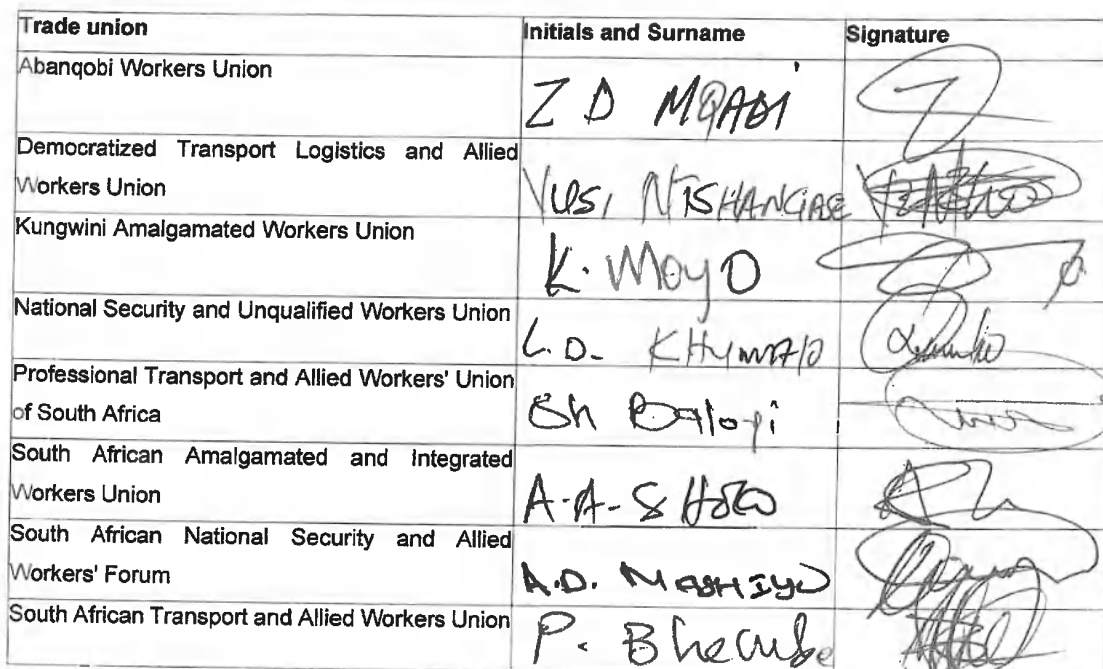 Trade union Initials and Surname Signature
Abanqobi Workers Union Z D MQADI
Democratized Transport Logistics and Allied
Workers Union VUSI NTSHANGASE
Kungwini Amalgamated Workers Union K. Moyo
National Security and Unqualified Workers Union L.D. KHUMALO
Professional Transport and Allied Workers' Union
of South Africa Baloyi
South African Amalgamated and Integrated
Workers Union A.A. SHOZO
South African National Security and Allied
Workers' Forum A.D. MASHIYO
South African Transport and Allied Workers Union P. Bhecube